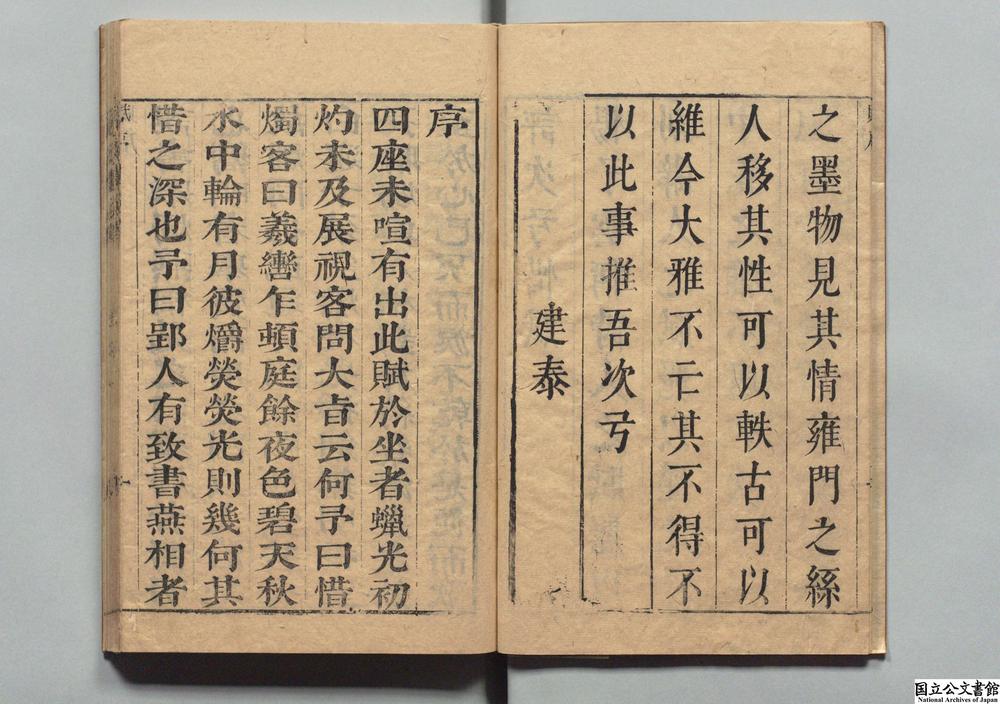 之墨物見其情雍門之絲
人移其性可以軼古可以
維今大雅不亡其不得不
以此事推吾次弓
建泰
序
四座未喧有出此賦於坐者蠟光初
灼未及展視客問大旨云何予曰惜
燭客曰羲轡乍頓庭餘夜色碧天秋
水中輪有月彼爝熒熒光則幾何其
惜之深也予曰郢人有致書燕相者
国立公文書館
National Archives of Japan